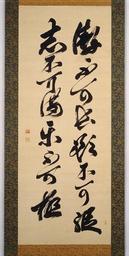 敖不可長欲不可従
志不可満楽不可極